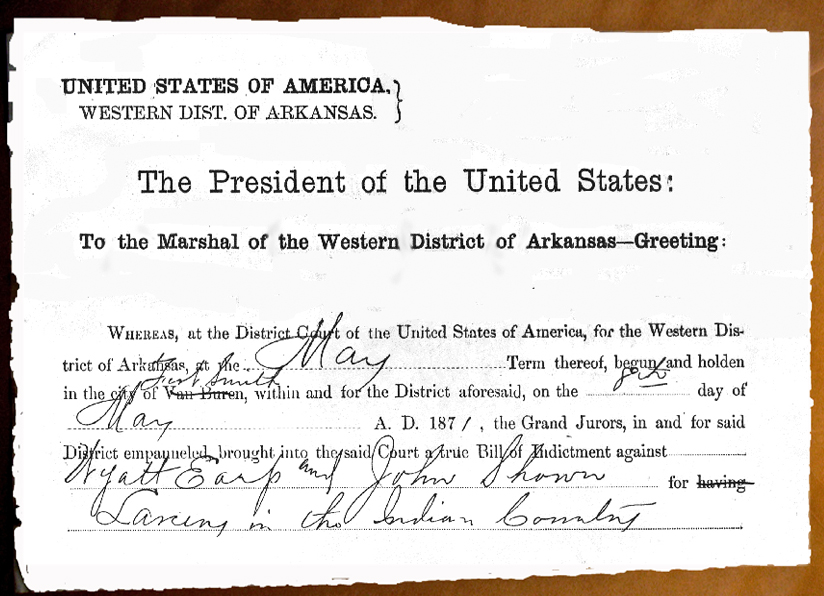 UNITED STATES OF AMERICA,
WESTERN DIST. OF ARKANSAS.
The President of the United States:
To the Marshal of the Western District of Arkansas—Greeting:
WHEREAS, at the District Court of the United States of America, for the Western Dis-
trict of Arkansas, at the May Term thereof, begun and holden
Fort Smith
in the city of Van Buren, within and for the District aforesaid, on the 8th day of
May A. D. 1871, the Grand Jurors, in and for said
District empanneled, brought into the said Court a true Bill of Indictment against
Wyatt Earp and John Shown for having
Larceny in the Indian Country